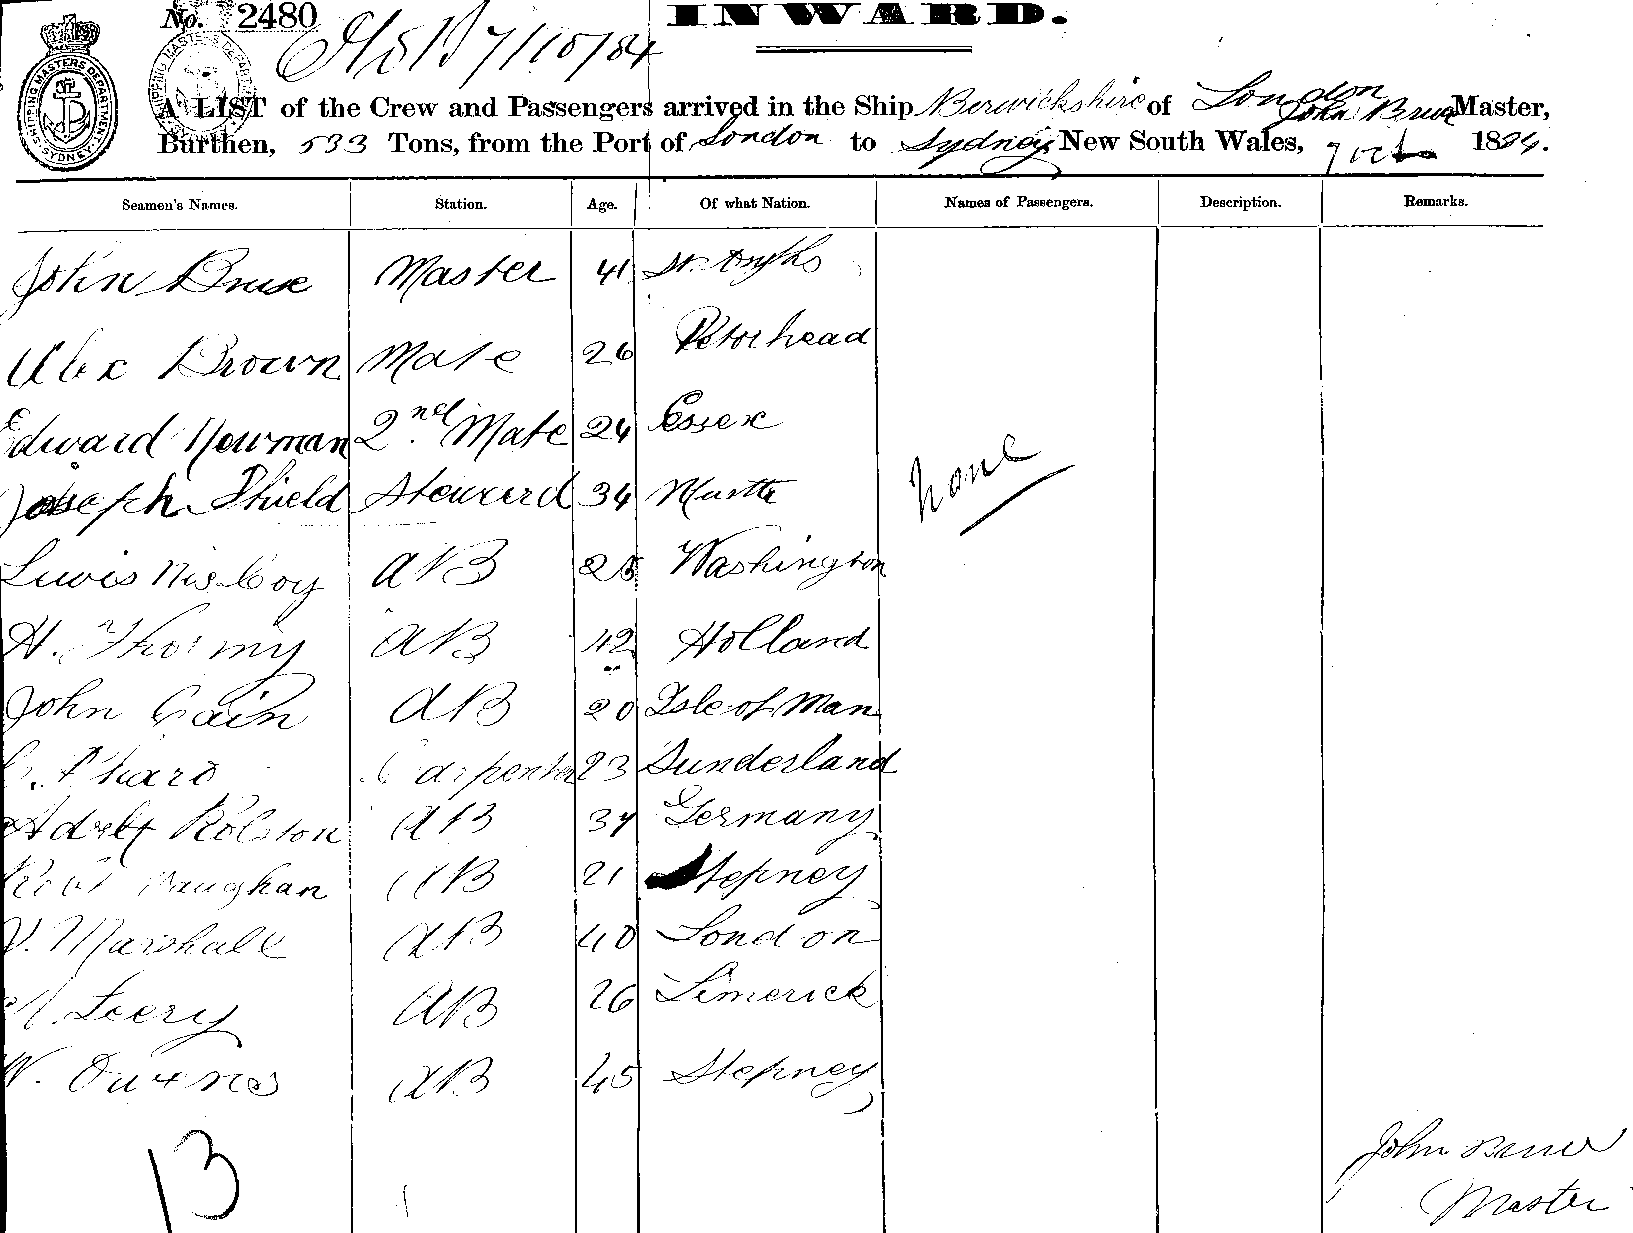 No. 2480 INWARD.
7/10/84
SHIPPING MASTERS DEPARTMENT SYDNEY
A LIST of the Crew and Passengers arrived in the Ship Berwickshire of London John Bruce Master,
Burthen, 533 Tons, from the Port of London to Sydney New South Wales, 7 Oct 1884.
Seamen's Names. Station. Age. Of what Nation. Names of Passengers. Description. Remarks.
John Bruce Master 41 St.
Alex Brown Mate 26 Peterhead
Edward Newman 2nd Mate 24 Essex
none
Joseph Shield Steward 34
Lewis AB 25 Washington
H. AB 42 Holland
John Cain AB 20 Isle of Man
Carpenter 23 Sunderland
Adolf Rolston AB 34 Germany
Robt Vaughan AB 21 Stepney
V. Marshall AB 40 London
Leery AB 26 Limerick
W. Owens AB 45 Stepney
13
John Bruce
Master